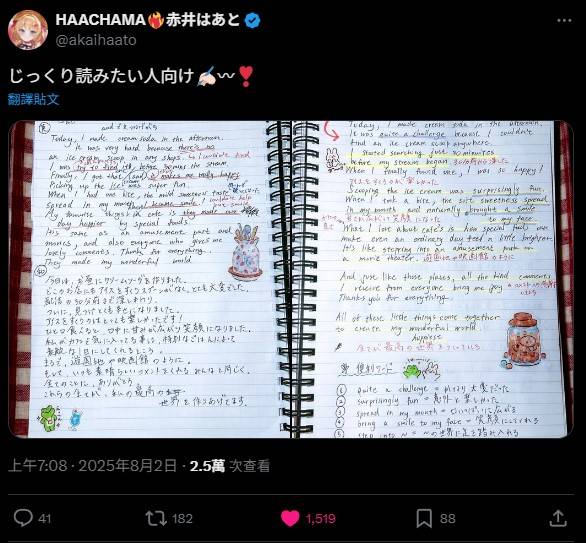 HAACHAMA❤️‍🔥赤井はあと
@akaihaato
じっくり読みたい人向け✍🏻〰❣️
翻譯貼文
Today, I made cream soda in the afternoon.
It was very hard because there's no
an ice cream scoop in any shops.
I was try to find before 30mins the stream.
Finally, I got that and it makes me really happy
Picking up the ice was super fun.
When I had one bite, the mild sweetness taste
Spread in my mouth
My favourite things in cafe is they made
day happier by special foods.
It's same as an amusement park and
movies, and also everyone who gives me
lovely comments. Thanks for everything.
They made my wonderful world.
今日は、お昼にクリームソーダを作りました。
どこのお店にもアイスをすくうスプーンがなくて、とても大変でした。
配信の30分前まで探しまわり、
ついに、見つけてとても幸せになりました。
アイスをすくうのはとっても楽しかったです！
ひとくち食べると、口の中に甘さが広がり笑顔になりました。
私がカフェを気に入ってる事は、特別なごはんによって
素敵な1日にしてくれるところ。
まるで、遊園地や映画館のように。
そして、いつも素晴らしいコメントをくれるみんなと同じく。
全てのことに、ありがとう
これらの全てが、私の最高の
世界を作りあげてます。
Today, I made cream soda in the afternoon.
It was quite a challenge because I couldn't
find an ice cream scoop anywhere.
I started searching just 30 minutes
before my stream began
When I finally found one, I was so happy!
Scooping the ice cream was surprisingly fun.
When I took a bite, the soft sweetness spread
in my mouth and naturally brought a smile
to my face.
What I love about cafe's is how special food can
make even an ordinary day feel a little brighter.
It's like stepping into an amusement park or
a movie theater. 遊園地や映画館のように
And just like those places, all the kind comments
I receive from everyone bring me joy
Thank you for everything.
All of these little things come together
to create my wonderful world.
全てが最高の世界を
便利ワード
① quite a challenge = けっこう大変だった
② surprisingly fun = 意外と楽しかった
③ spread in my mouth = 口いっぱいに広がる
④ bring a smile to my face = 笑顔にしてくれる
⑤ step into ~ = ~の世界に足を踏み入れる
上午7:08 · 2025年8月2日 · 2.5萬 次查看
41
182
1,519
88